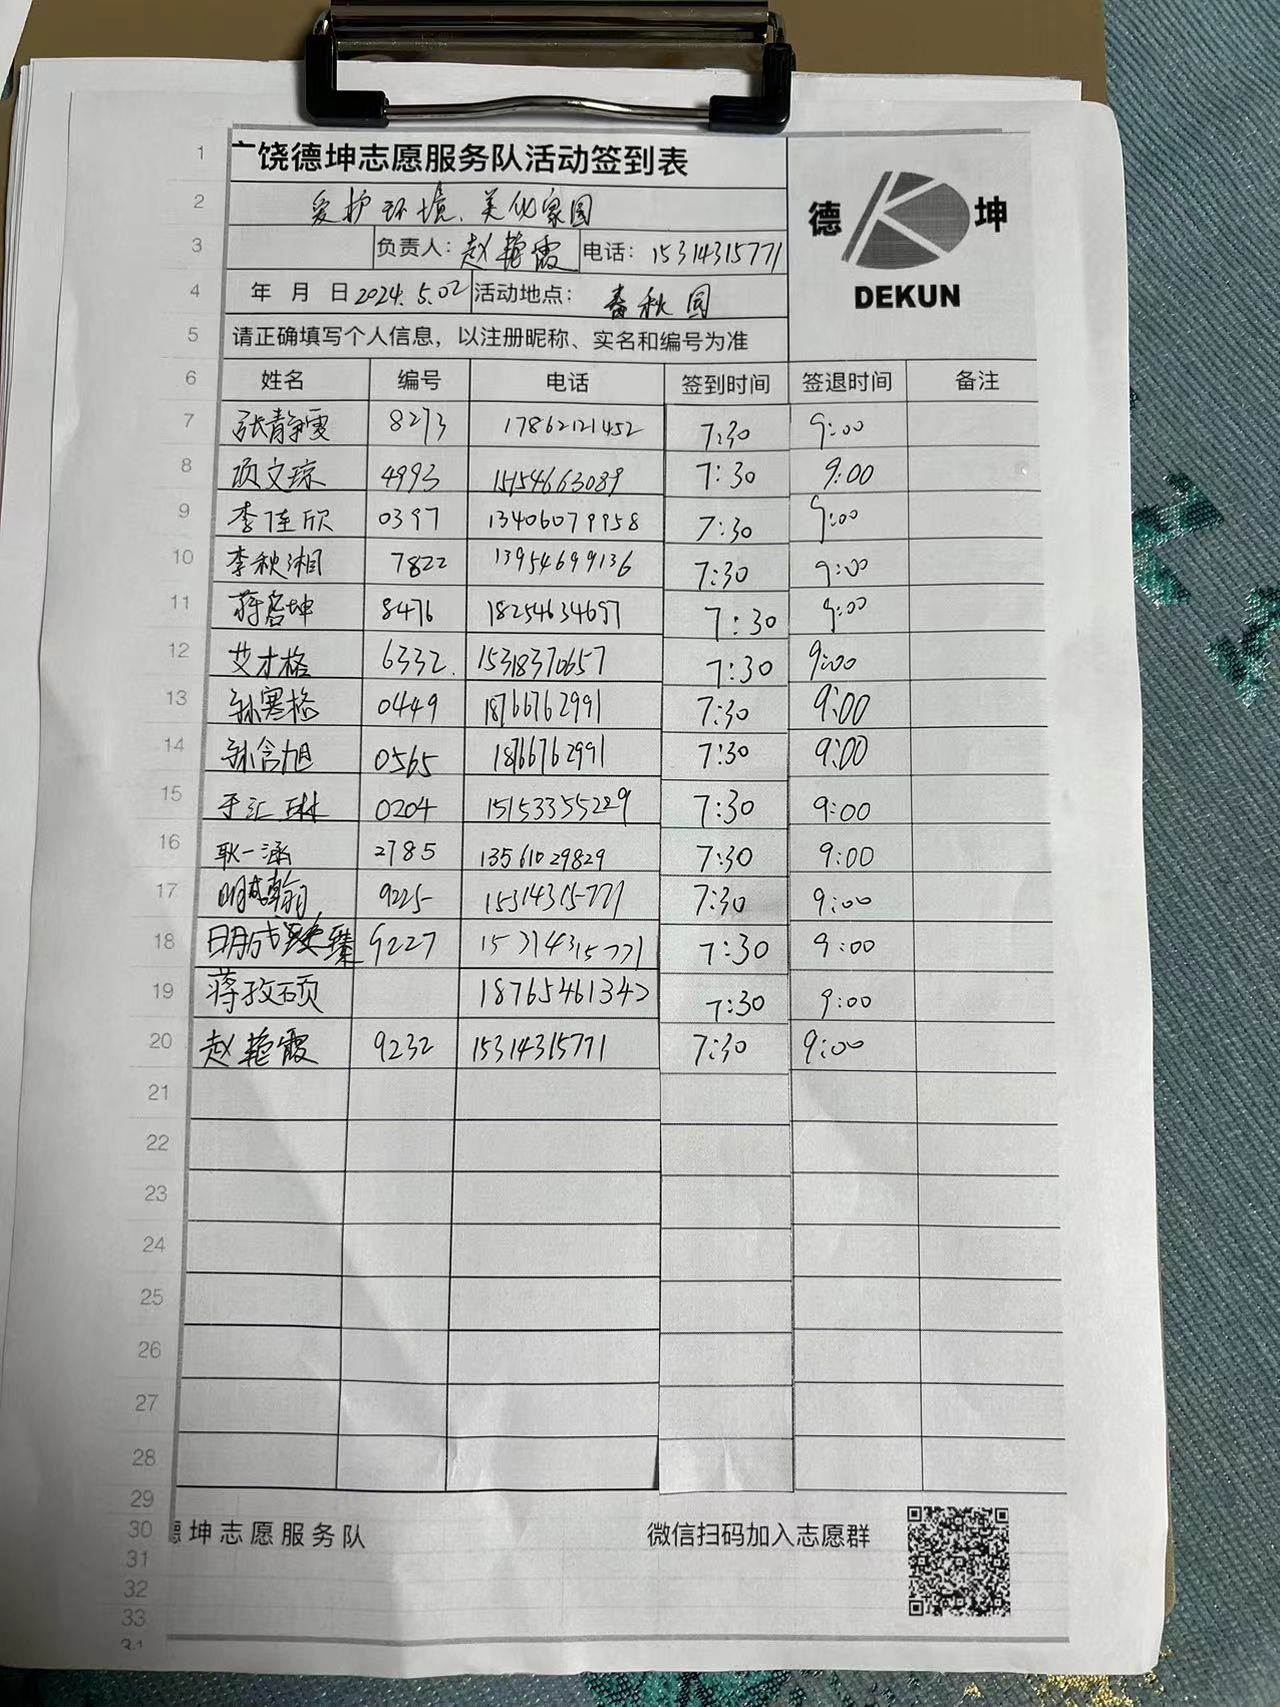 1 广饶德坤志愿服务队活动签到表
2 爱护环境、美化家园
德 坤
DEKUN
3 负责人：赵艳霞 电话：15314315771
4 年 月 日 2024.5.02 活动地点：春秋园
5 请正确填写个人信息，以注册昵称、实名和编号为准
6 姓名 编号 电话 签到时间 签退时间 备注
7 张静雯 8273 17862121452 7:30 9:00
8 项文琼 4993 15154663089 7:30 9:00
9 李佳欣 0397 13406079958 7:30 9:00
10 李秋湘 7822 13954699136 7:30 9:00
11 蒋启坤 8476 18254634697 7:30 9:00
12 艾才格 6332. 15318370657 7:30 9:00
13 孙寒格 0449 18766762991 7:30 9:00
14 孙含旭 0565 18766762991 7:30 9:00
15 于汇琳 0204 15153355229 7:30 9:00
16 耿一涵 2785 13561029829 7:30 9:00
17 明成翰 9225 15314315771 7:30 9:00
18 明成臻 9227 15314315771 7:30 9:00
19 蒋孜硕 18765461342 7:30 9:00
20 赵艳霞 9232 15314315771 7:30 9:00
21
22
23
24
25
26
27
28
29
30 德坤志愿服务队 微信扫码加入志愿群
31
32
33